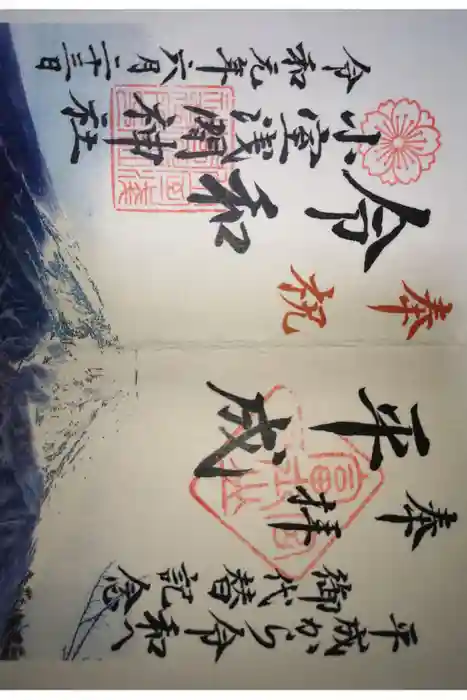 平成から令和へ
御代替記念
奉拝
平成
奉祝
令和
小室浅間神社
令和元年六月二十三日